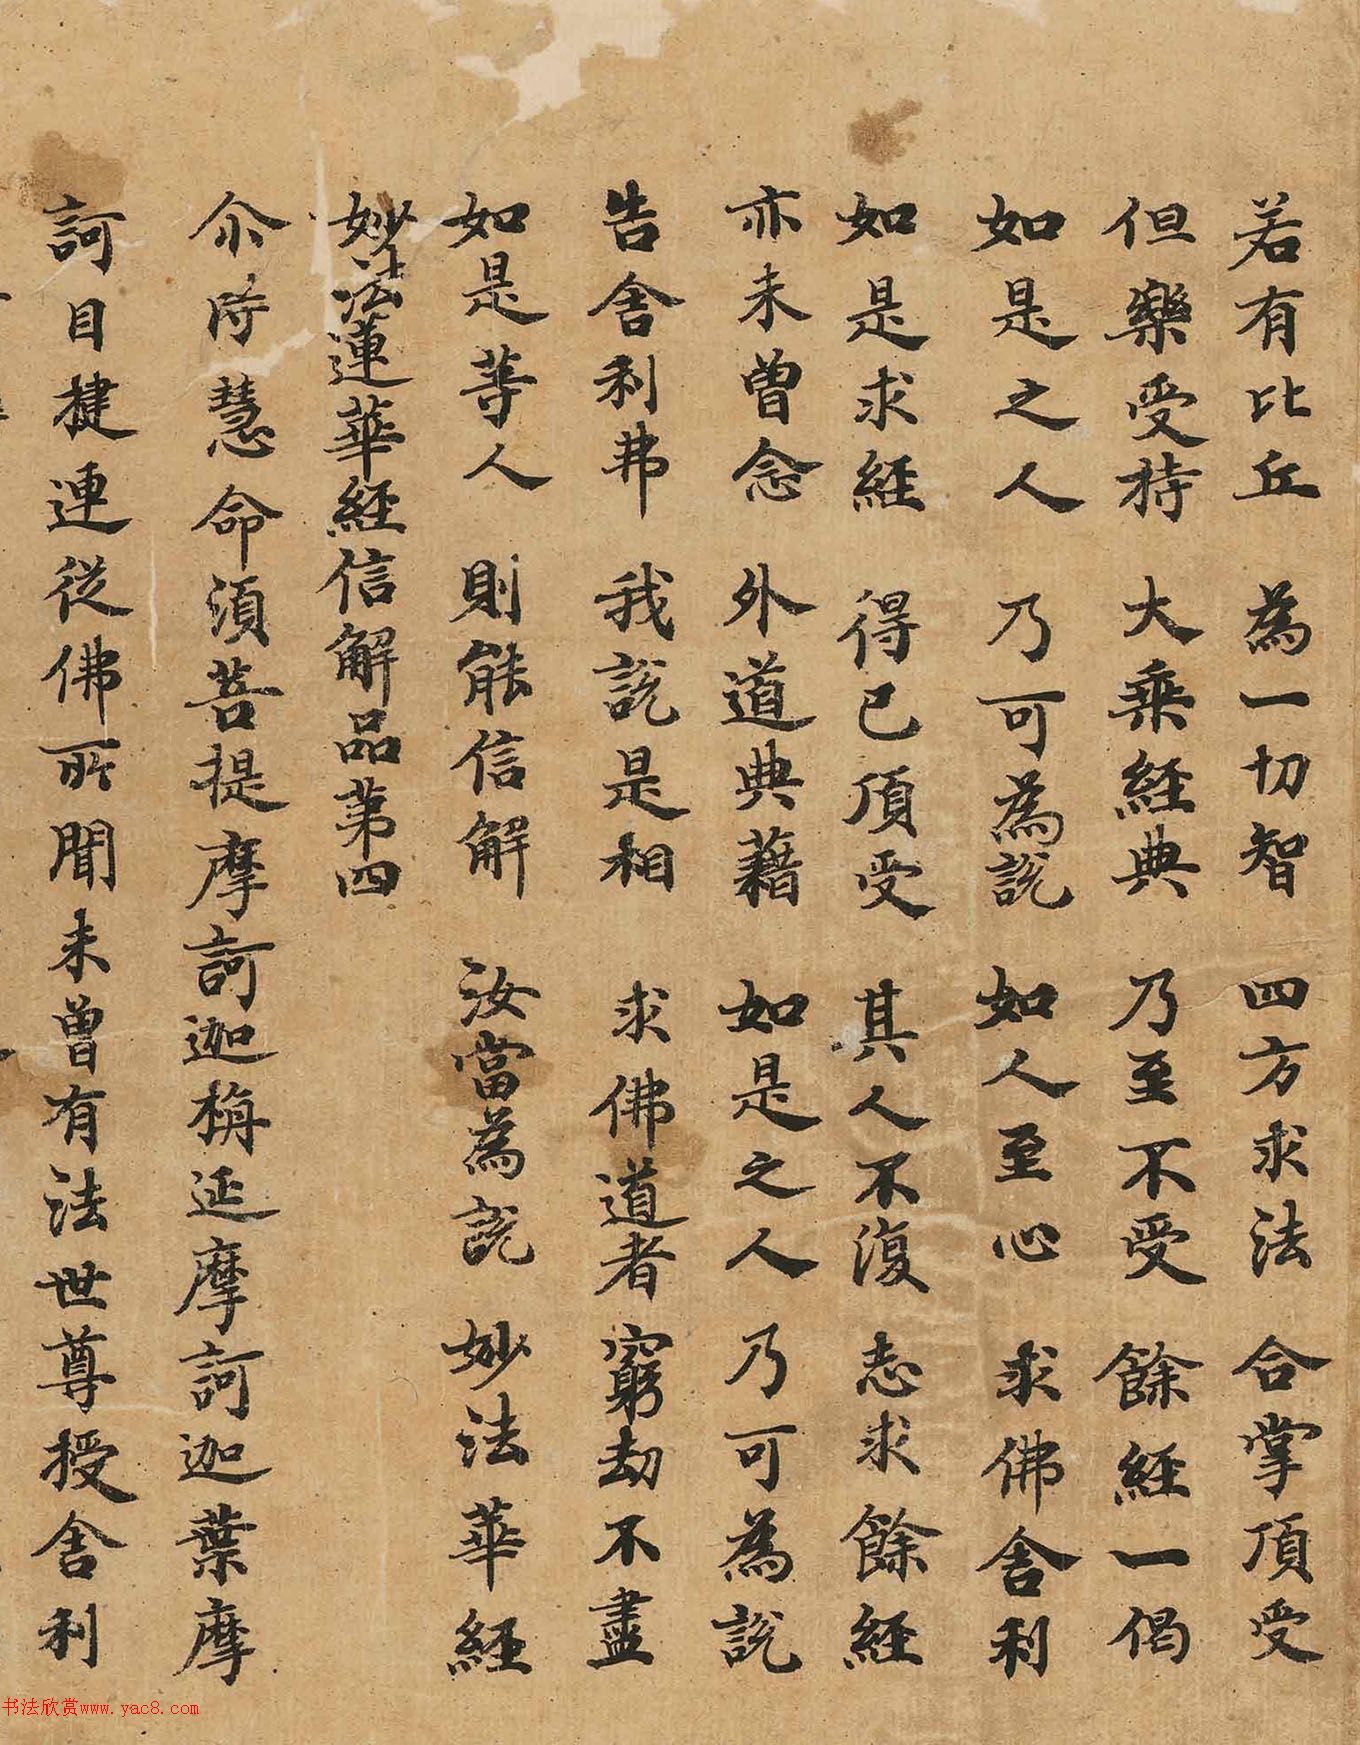 若有比丘 為一切智 四方求法 合掌頂受
但樂受持 大乘經典 乃至不受 餘經一偈
如是之人 乃可為說 如人至心 求佛舍利
如是求經 得已頂受 其人不復 志求餘經
亦未曾念 外道典藉 如是之人 乃可為說
告舍利弗 我說是相 求佛道者 窮劫不盡
如是等人 則能信解 汝當為說 妙法華經
妙法蓮華經信解品第四
尒時慧命須菩提摩訶迦栴延摩訶迦葉摩
訶目揵連從佛所聞未曾有法世尊授舍利
书法欣赏www.yac8.com